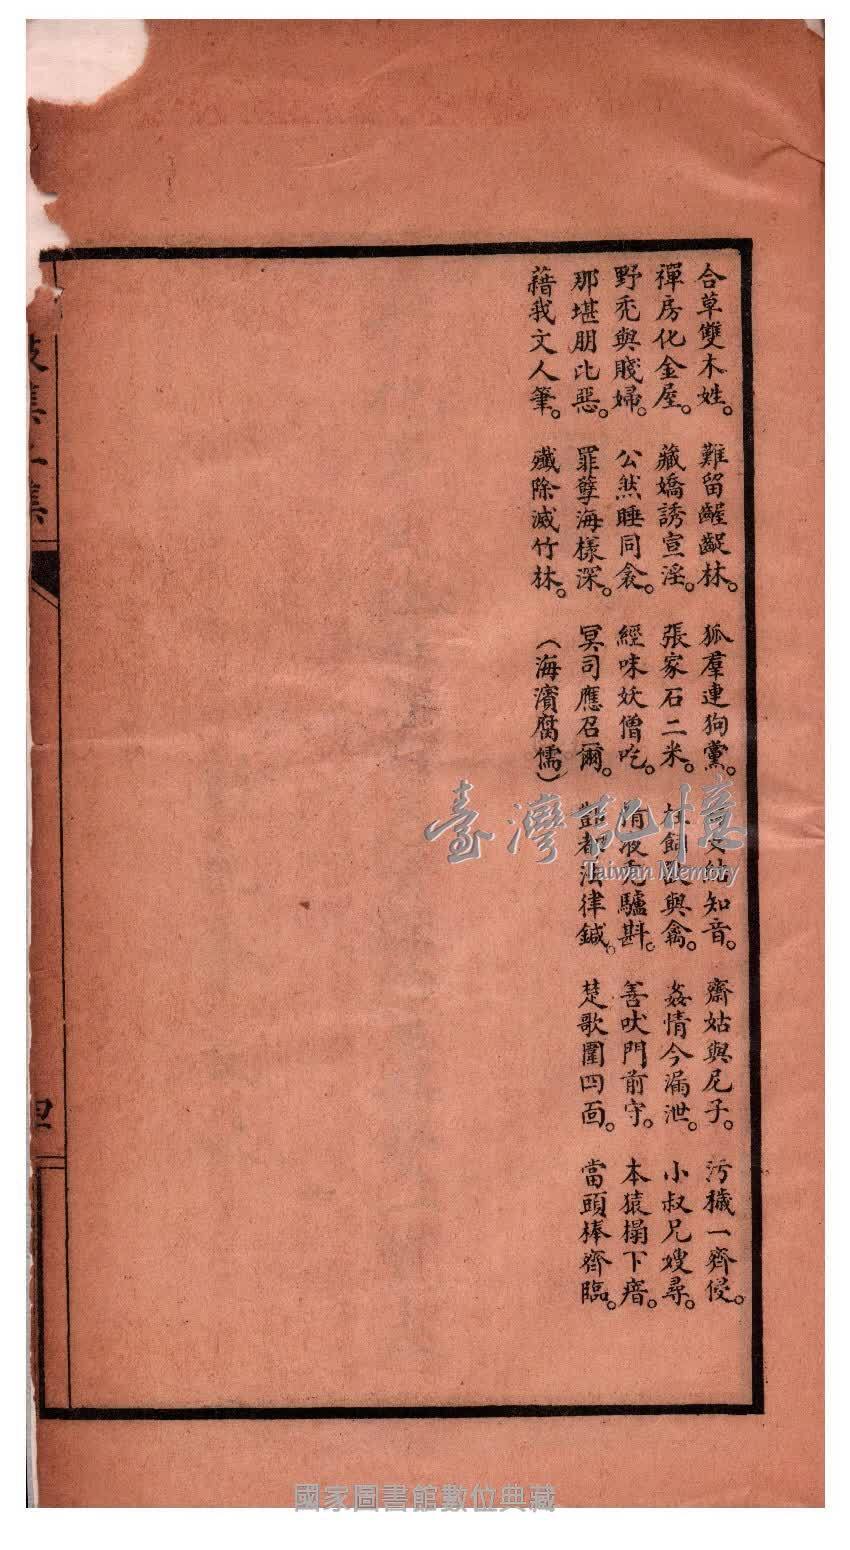 合草雙木姓。難留齷齪林。狐羣連狗黨。知音。齋姑與尼子。污穢一齊侵。
禪房化金屋。藏嬌誘宣淫。張家石二米。飼與禽。姦情今漏泄。小叔兄嫂尋。
野禿與賤婦。公然睡同衾。經味妖僧吃。液禿驢斟。善吠門前守。本猿榻下瘖。
那堪朋比惡。罪孽海樣深。冥司應召爾。酆都法律鍼。楚歌圍四面。當頭棒齊臨。
藉我文人筆。殲除滅竹林。(海濱腐儒)
集
臺灣記憶
Taiwan Memory
國家圖書館數位典藏